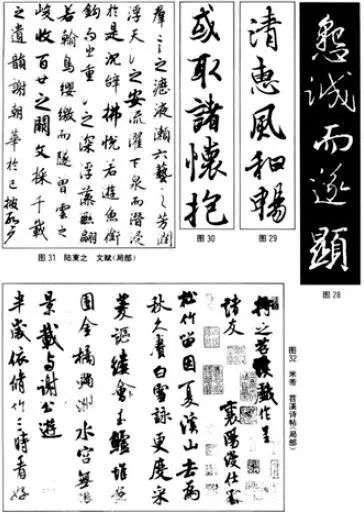 羣言之瀝液漱六藝之芳潤
浮天淵之安流濯下泉而潛浸
於是沈辭怫悅若遊魚銜
鈎而出重淵之深浮藻聯翩
若翰鳥纓繳而墜曾雲之
峻收百世之闕文採千載
之遺韻謝朝華於已披啟夕
图 31 陆柬之 文赋(局部)
或取諸懷抱
图 30
清惠風和暢
图 29
懇誠而遂顯
图 28
將之苕溪戲作呈
諸友
襄陽漫仕黻
松竹留因夏溪山去為
秋久賡白雪詠更度采
菱謳縷會玉鱸堆案
團金橘滿洲水宮無
景載與謝公遊
半歲依脩竹三時看好
图32 米芾 苕溪诗帖(局部)